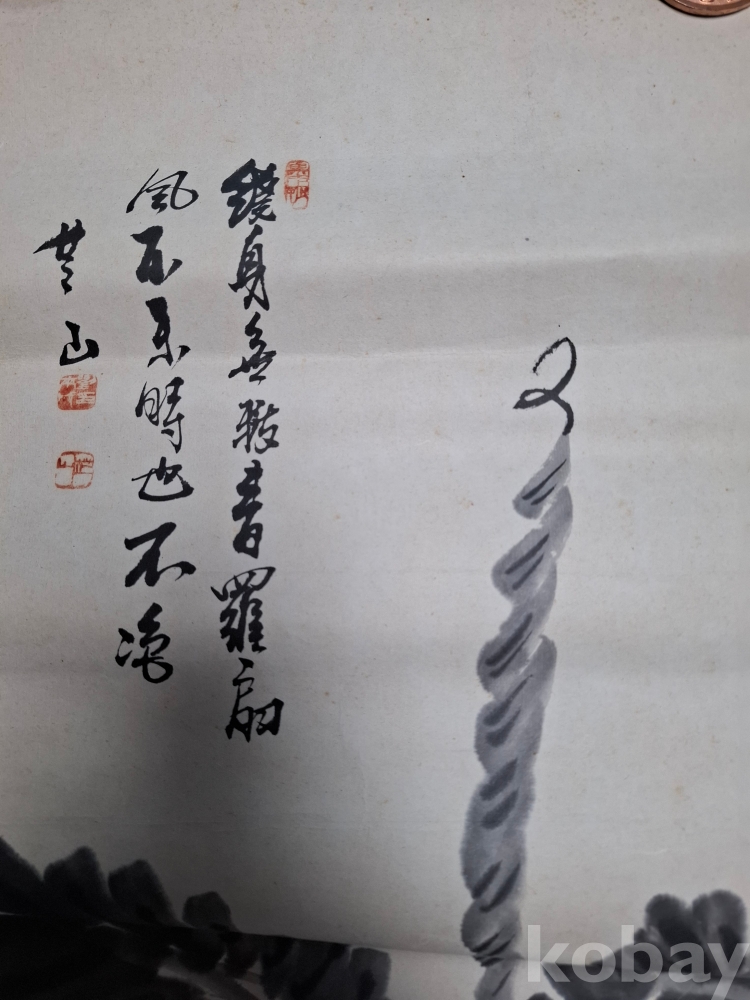 繞身無數青羅扇
風不来時也不凉
山
kobay